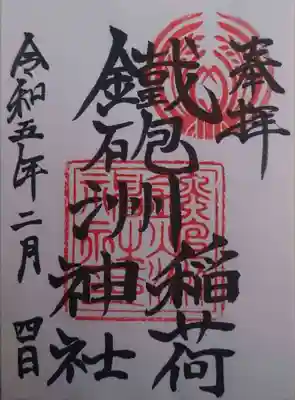 奉拝
鐵砲洲稲荷
神社
令和五年二月四日